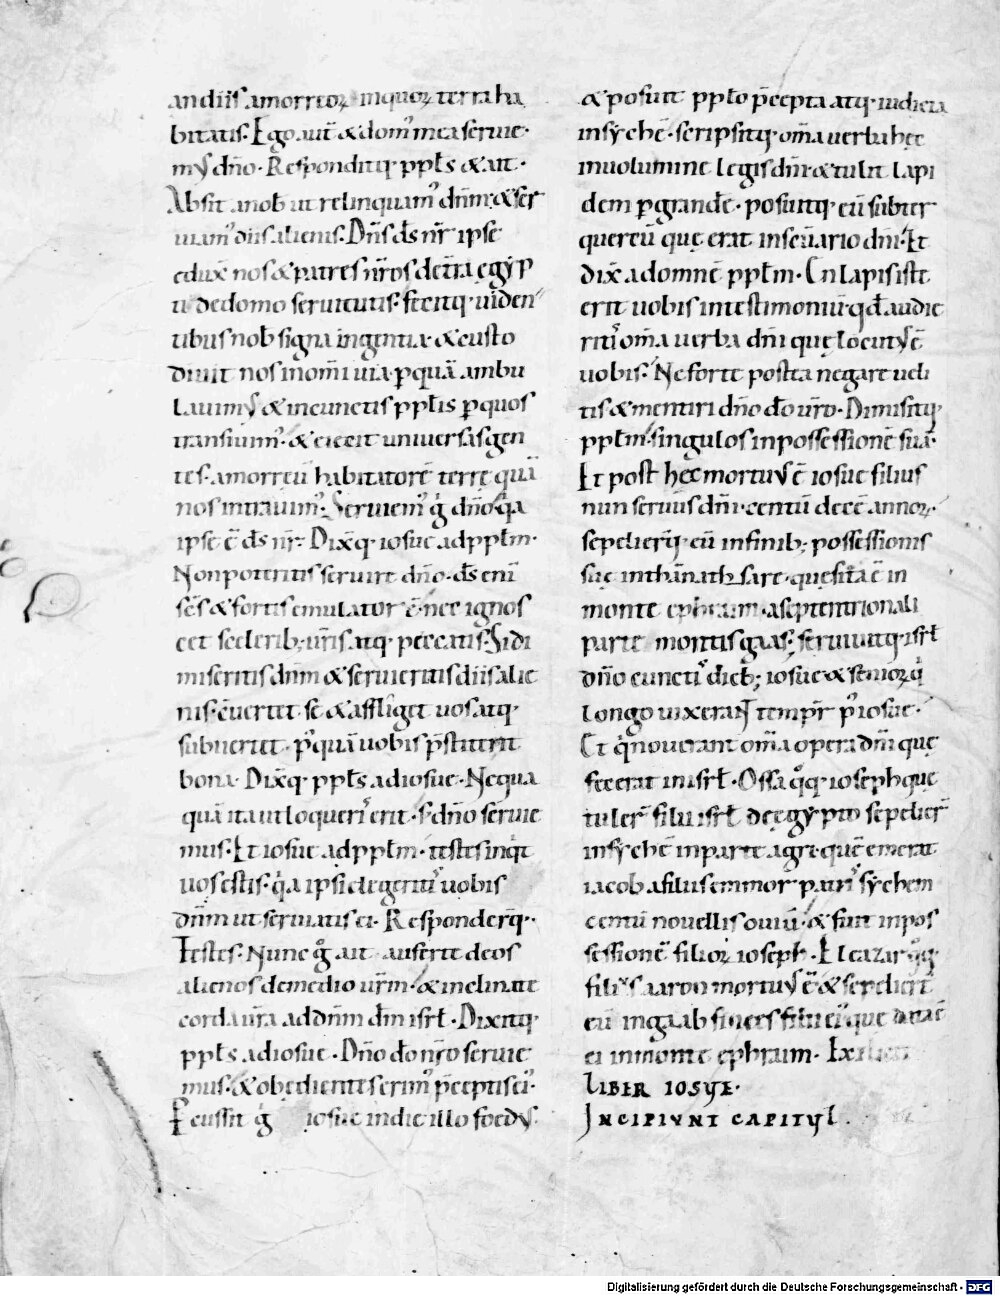 an diis amorreoꝝ inquoꝝ terra ha
bitatis. Ego aut̄ & dom᾽ mea seruie
m᾽ dño. Responditq; ppl̄s & ait.
Absit anob̄ ut relinquam᾽ dn̄m & ser
uiam᾽ diis alienis. Dn̄s d̄s nr̄ ipse
edux̄ nos & patres nr̄os de tr̄a egyp
ti de domo seruitutis. fecitq; uiden
tibus nob̄ signa ingentia. & custo
diuit nos in om̄i uia p̱quā ambu
lauim᾽ & in cunctis ppl̄is p̱quos
transiuim᾽. & eiecit uniuersas gen
tes. amorreū habitatorē terrę quā
nos intrauim᾽. Seruiem᾽ g̊ dño qa
ipse ē d̄s nr̄. Dix̄q. iosue ad ppl̄m.
Non poteritis seruire dño. d̄s enī
sc̄s & fortis emulator ē. nec ignos
cet scelerib; ur̄is atq; peccatis. Sidi
miseritis dn̄m & seruieritis diis alie
nis. cōuertet se & affliget uos atq;
subuertet. p᾽quā uobis p̄stiterit
bona. Dix̄q. ppl̄s ad iosue. Nequa
quā ita ut loqueri᾽ erit. s; dño seruie
mus. Et iosue ad ppl̄m. testes inqt
uos estis. qa ipsi elegeriti᾽ uobis
dn̄m ut seruiatis ei. Responderq̄.
Testes. Nunc g̊ ait auferte deos
alienos de medio ur̄m. & inclinate
corda ur̄a ad dn̄m d̄m isrl̄. Dixitq;
ppl̄s ad iosue. Dño d̄o nr̄o seruie
mus. & obedientes erim᾽ p̄ceptis ei᾽.
Pcussit g̊ iosue in die illo foed᾽
& posuit pplo p̄cepta atq; iudicia
in sychē. scripsitq; om̄a uerba hęc
in uolumine legis dn̄i & tulit lapi
dem p̱grandē. posuitq; eū subter
quercū quę erat in sc̄uario dn̄i. Et
dix̄ ad omnē ppl̄m. En lapis iste
erit uobis in testimoniū. qd̄ audie
rit om̄a uerba dn̄i quę locut᾽ ē
uobis. Ne forte postea negare ueli
tis & mentiri dño d̄o ur̄o. Dimisitq;
ppl̄m. singulos in possessionē suā.
Et post hęc mortu᾽ ē iosue filius
nun seruus dn̄i. centū decē annoꝝ.
sepelierq̄. eū in finib; possessionis
suę in thānath sare. que sita ē in
monte ephraim. a septentrionali
parte montis gaas. seruiuitq; isrl̄
dño cuncti᾽ dieb; iosue & senioꝝ q
longo uixerant tempr̄ p᾽ iosue.
Et q nouerant om̄a opera dn̄i quę
fecerat in isrl̄. Ossa q̊q; ioseph que
tuler̄ filii isrl̄ de egypto sepelier̄
in sychē in parte agri. quē emerat
iacob a filiis emmor patri᾽ sychem
centū nouellis ouiū. & fuit in pos
sessionē filioꝝ ioseph. Eleazar q̊q;
fili᾽ aaron mortu᾽ ē & sepelier̄
eū in gaab finees filii ei᾽ que data ē
ei in monte ephraim. Explicit
LIBER IOSUE.
INCIPIUNT CAPITUL.
Digitalisierung gefördert durch die Deutsche Forschungsgemeinschaft - DFG